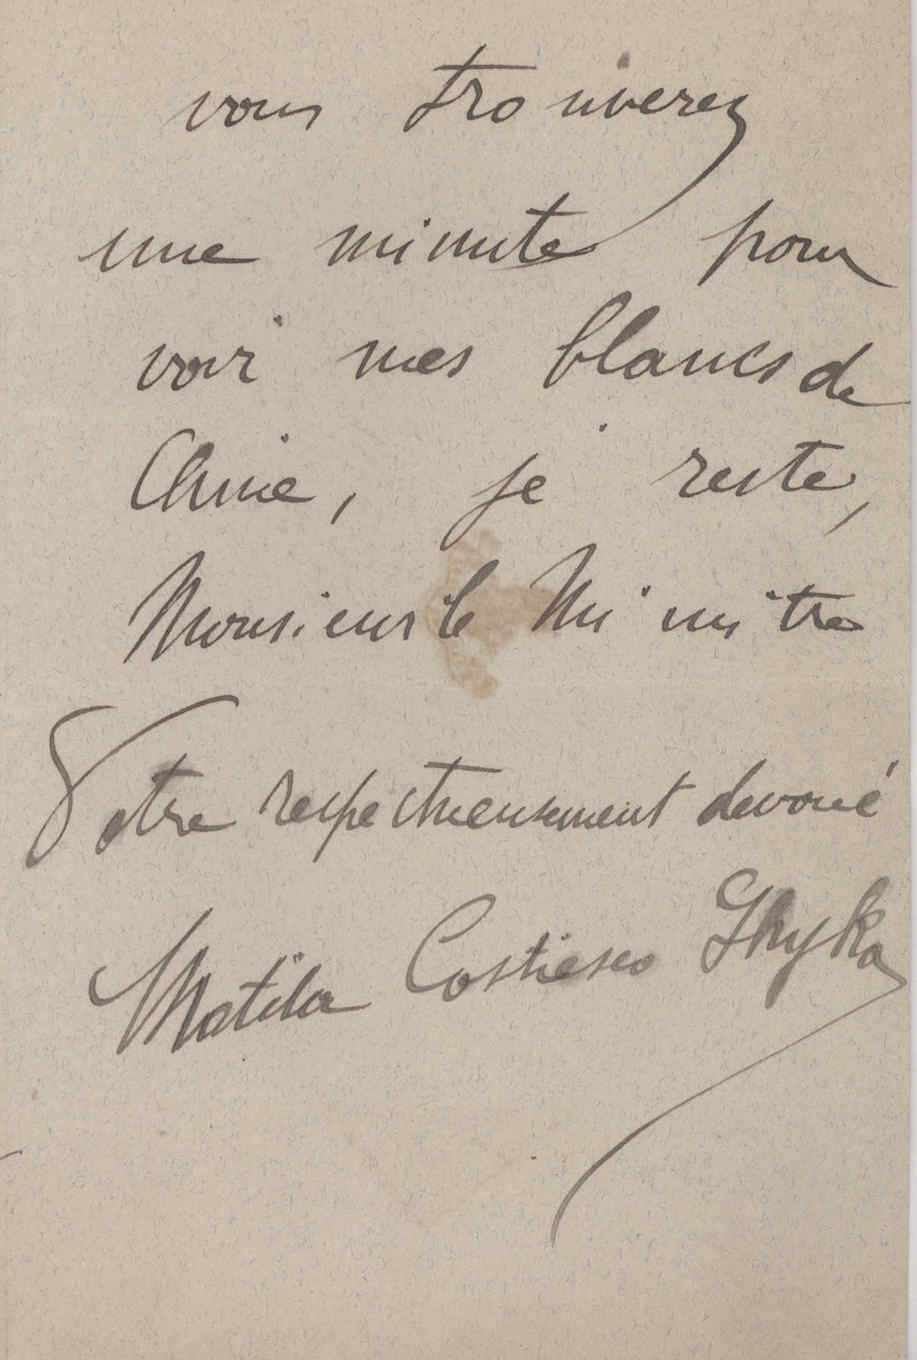 vous trouverez
une minute pour
voir mes blancs de
Chine, je reste,
Monsieur le Ministre
Votre respectueusement devoué
Matila Costiesco Ghyka